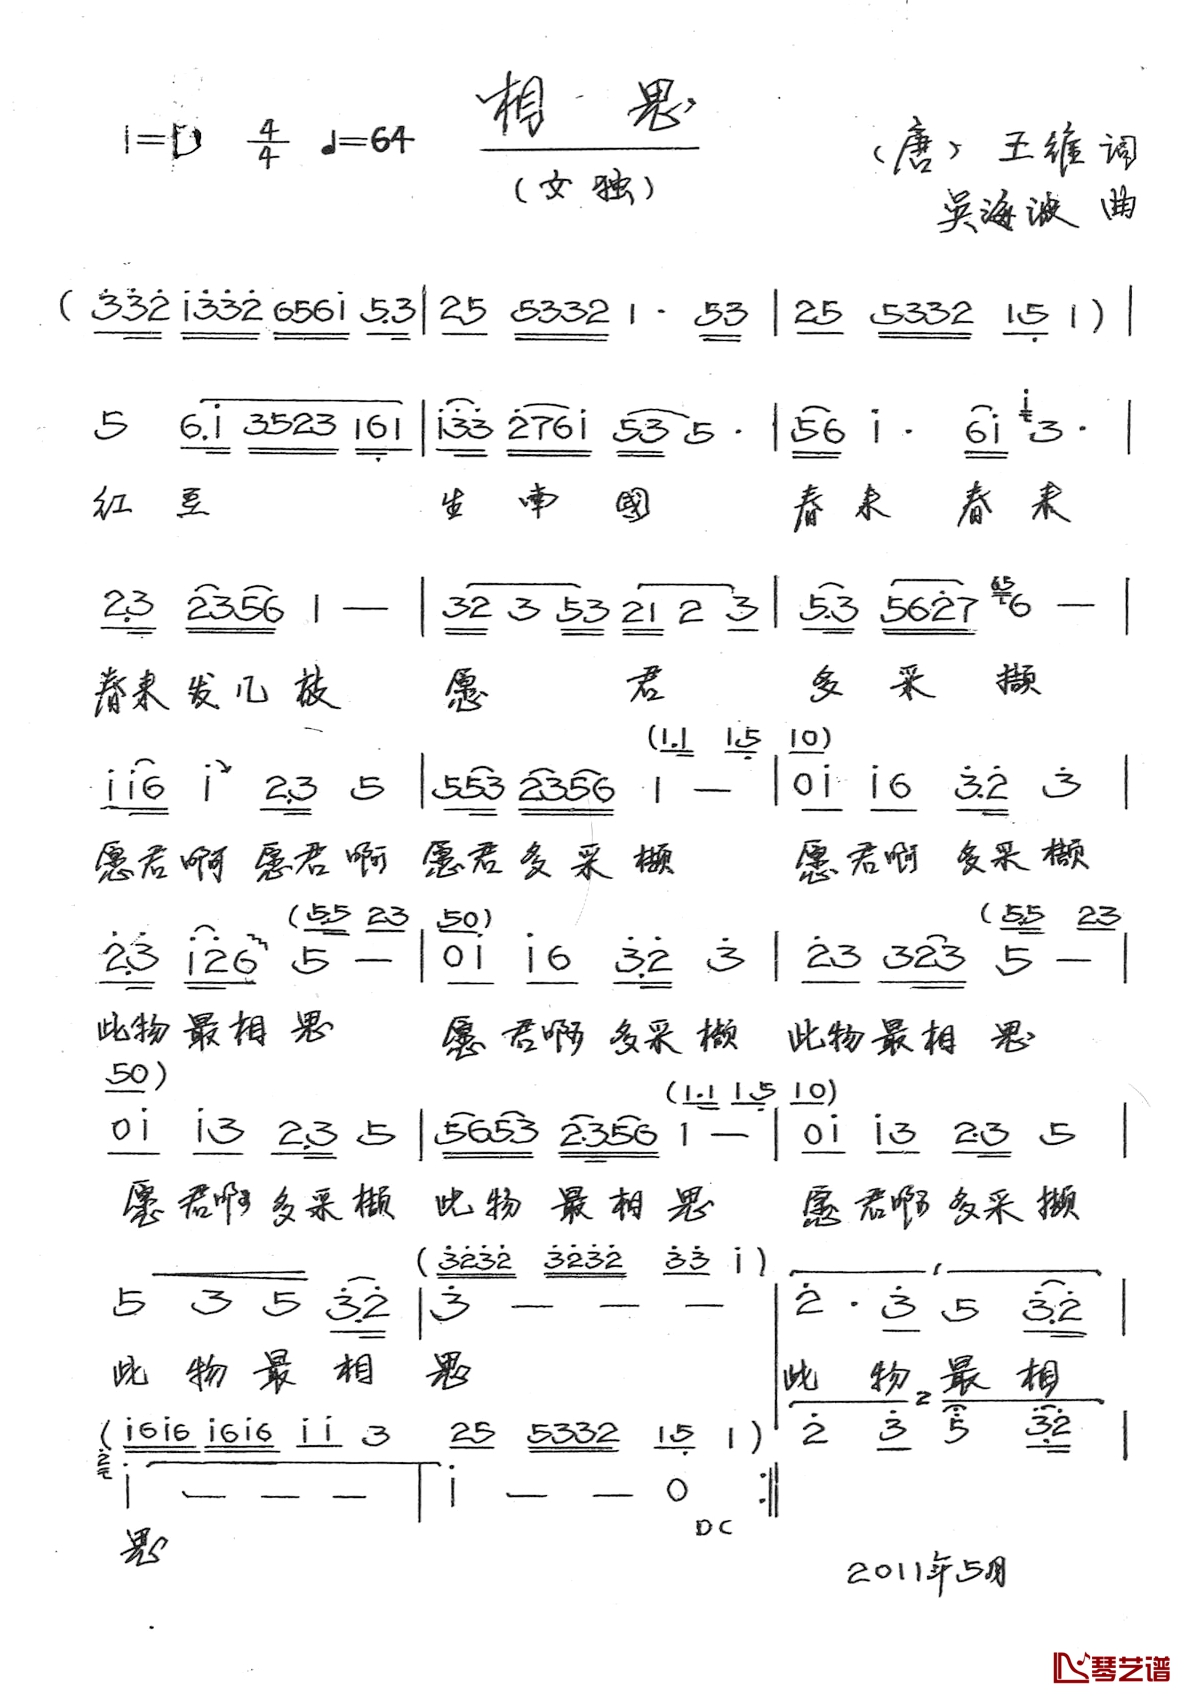 相思
1=D 4/4 ♩=64
(女独)
(唐) 王维 词
吴海波 曲
(3̇3̇2̇ i3̇3̇2̇ 656i 5.3 | 25 5332 1· 53 | 25 5332 15̣ 1) |
5 6.i 3523 16̣1 | i3̇3̇ 2̇76i 53 5· | 56 i· 6i 3· |
红豆 生南國 春来 春来
2.3 2356 1 — | 32 3 53 21 2 3 | 5.3 562̇7 6 — |
春来发几枝 愿 君 多采撷
(1.1 15̣ 10)
ii6 i 2.3 5 | 553 2356 1 — | 0i i6 3̇.2̇ 3̇ |
愿君啊 愿君啊 愿君多采撷 愿君啊 多采撷
(5.5 23 50) (5.5 23
2̇.3̇ i2̇6 5 — | 0i i6 3̇.2̇ 3̇ | 2̇3 323 5 — |
此物最相思 愿君啊 多采撷 此物最相思
50) (1.1 15̣ 10)
0i i3 2.3 5 | 5653 2.356 1 — | 0i i3 2.3 5 |
愿君啊 多采撷 此物最相思 愿君啊多采撷
(3̇2̇3̇2̇ 3̇2̇3̇2̇ 3̇3̇ i)
5 3 5 3̇.2̇ | 3̇ — — — | 2̇· 3̇ 5 3̇.2̇ |
此物最相思 此物最相
(i6i6 i6i6 ii 3 25 5332 15̣ 1) 2̇ 3̇ 2 5̇ 3̇.2̇ |
i — — — | i — — 0 :||
DC
思
2011年5月
琴艺谱